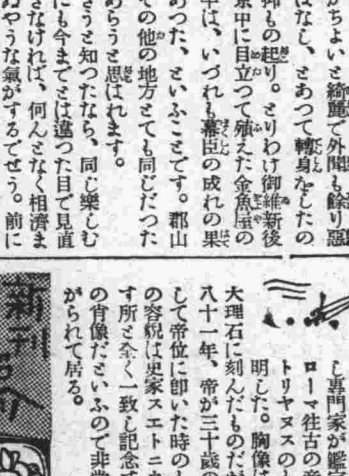 がちょいと綺麗で外聞も餘り惡
はなし、とあつて轉身をしたの
抑もの起り。とりわけ御維新後
京中に目立つて殖えた金魚屋の
半は、いづれも幕臣の成れの果
あつた、といふことです。郡山
ての他の地方とても同じだつた
あらうと思はれます。
さうと知つたなら、同じ樂しむ
にも今までとは違つた目で見直
さなければ、何んとなく相濟ま
ぬやうな氣がするでせう。前に
し專門家が鑑
ローマ往古の
トリヤヌスの
明した。胸像
大理石に刻んだものだ
八十一年、帝が三十歳
して帝位に卽いた時の
の容貌は史家スエトニ
す所と全く一致し記念
の肖像だといふので非常
がられて居る。
新刊
紹介